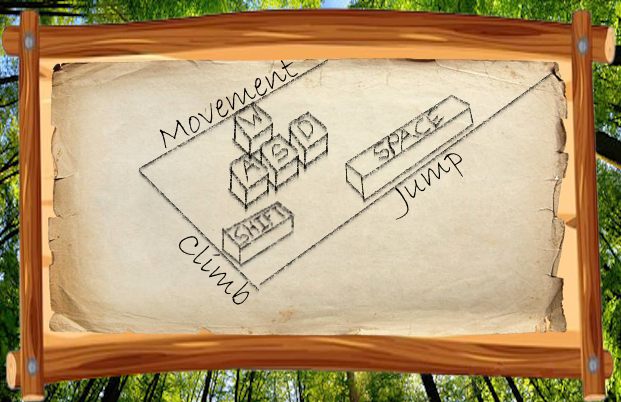 Movement
W
A S D
SPACE
Jump
SHIFT
Climb